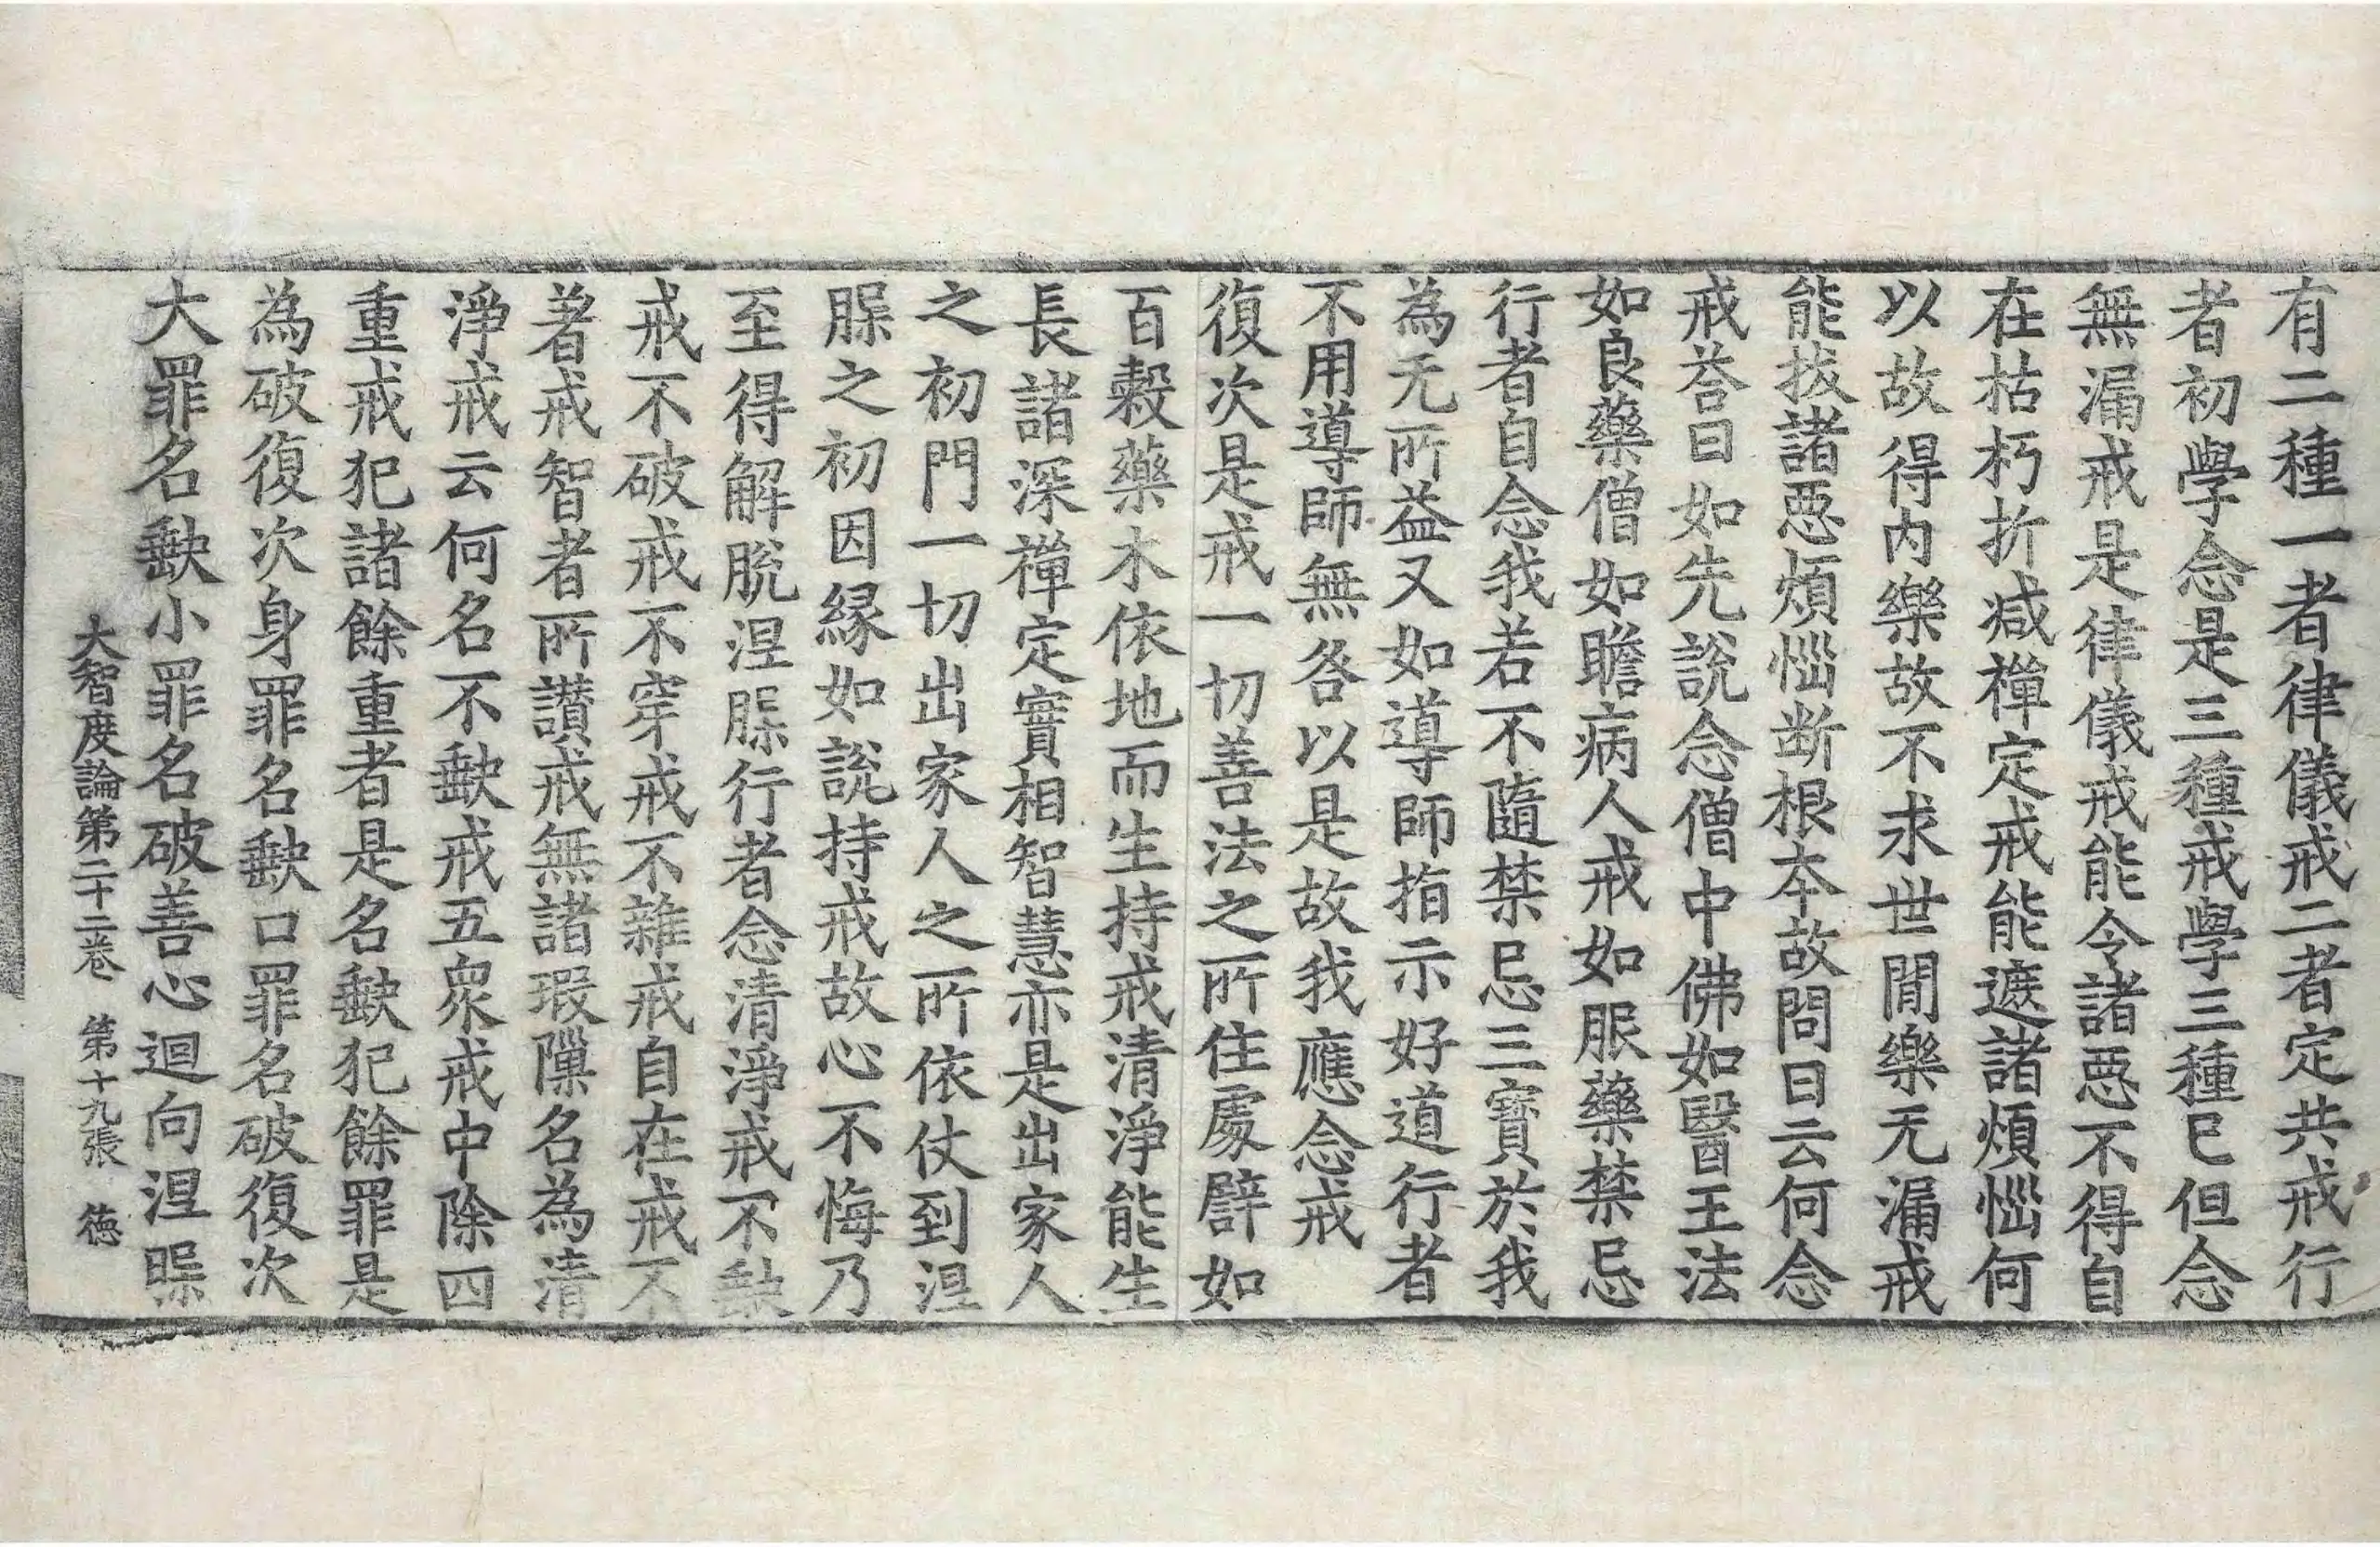 有二種一者律儀戒二者定共戒行
者初學念是三種戒學三種已但念
無漏戒是律儀戒能令諸惡不得自
在枯朽折減禪定戒能遮諸煩惱何
以故得內樂故不求世閒樂无漏戒
能拔諸惡煩惱断根本故問曰云何念
戒荅曰如先說念僧中佛如醫王法
如良藥僧如瞻病人戒如服藥禁忌
行者自念我若不隨禁忌三寶於我
為无所益又如導師指示好道行者
不用導師無咎以是故我應念戒
復次是戒一切善法之所住處譬如
百穀藥木依地而生持戒清淨能生
長諸深禪定實相智慧亦是出家人
之初門一切出家人之所依仗到涅
槃之初因緣如說持戒故心不悔乃
至得解脫涅槃行者念清淨戒不缺
戒不破戒不穿戒不雜戒自在戒不
著戒智者所讚戒無諸瑕隟名為清
淨戒云何名不缺戒五衆戒中除四
重戒犯諸餘重者是名缺犯餘罪是
為破復次身罪名缺口罪名破復次
大罪名缺小罪名破善心迴向涅槃
大智度論第二十二卷　第十九張　德